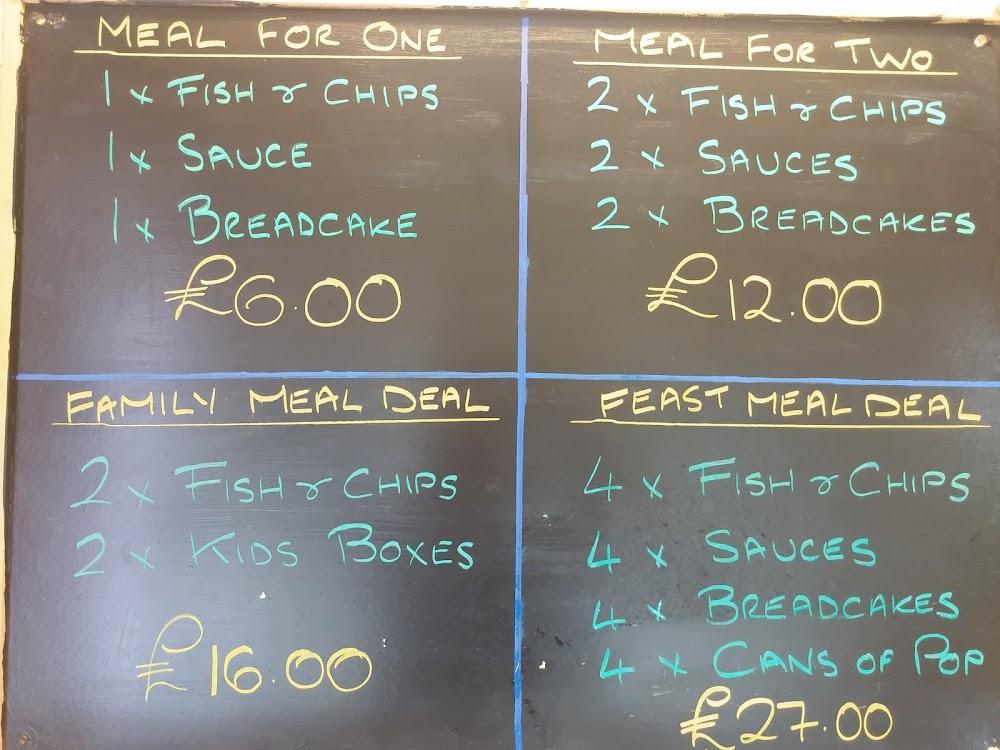 MEAL FOR ONE
1 x FISH & CHIPS
1 x SAUCE
1 x BREADCAKE
£6.00
MEAL FOR TWO
2 x FISH & CHIPS
2 x SAUCES
2 x BREADCAKES
£12.00
FAMILY MEAL DEAL
2 x FISH & CHIPS
2 x KIDS BOXES
£16.00
FEAST MEAL DEAL
4 x FISH & CHIPS
4 x SAUCES
4 x BREADCAKES
4 x CANS OF POP
£27.00